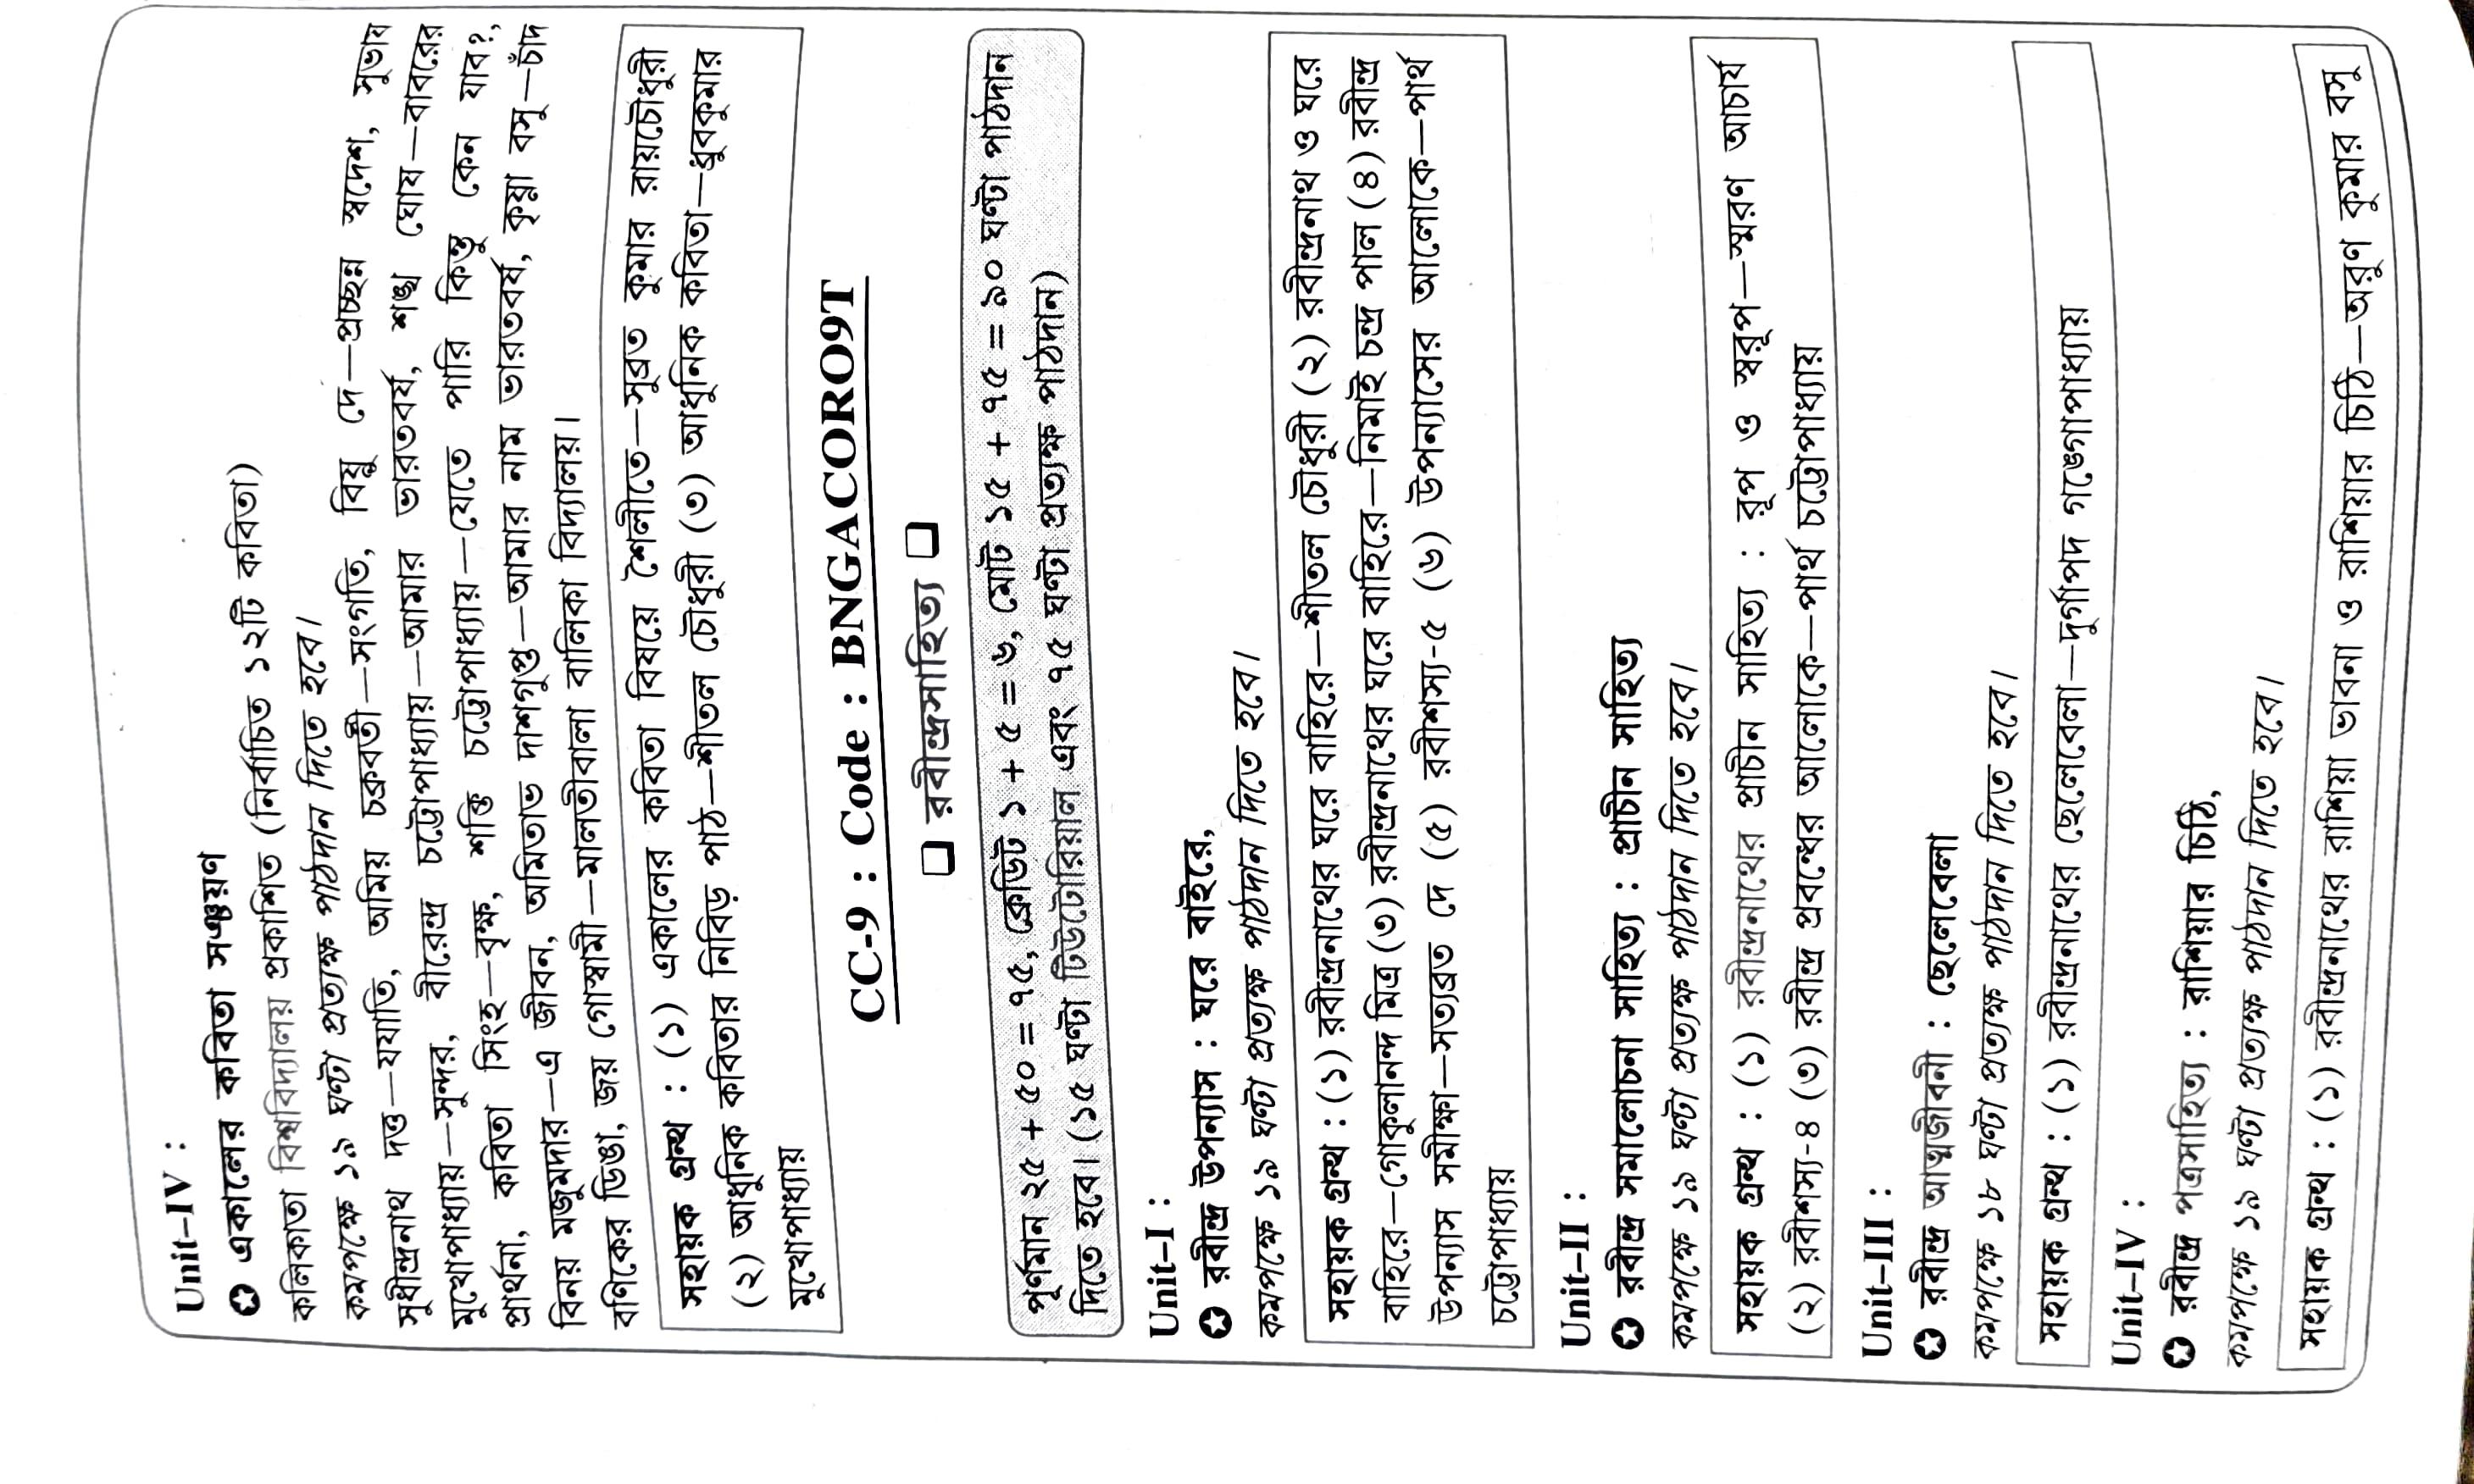 Unit–IV :
✪ একালের কবিতা সঞ্চয়ণ
কলিকাতা বিশ্ববিদ্যালয় প্রকাশিত (নির্বাচিত ১২টি কবিতা)
কমপক্ষে ১৯ ঘণ্টা প্রত্যক্ষ পাঠদান দিতে হবে।
সুধীন্দ্রনাথ দত্ত—যযাতি, অমিয় চক্রবর্তী—সংগতি, বিষ্ণু দে—প্রচ্ছন্ন স্বদেশ, সুভাষ
মুখোপাধ্যায়—সুন্দর, বীরেন্দ্র চট্টোপাধ্যায়—আমার ভারতবর্ষ, শঙ্খ ঘোষ—বাবরের
প্রার্থনা, কবিতা সিংহ—বৃক্ষ, শক্তি চট্টোপাধ্যায়—যেতে পারি কিন্তু কেন যাব?,
বিনয় মজুমদার—এ জীবন, অমিতাভ দাশগুপ্ত—আমার নাম ভারতবর্ষ, কৃষ্ণা বসু—চাঁদ
বণিকের ডিঙা, জয় গোস্বামী—মালতীবালা বালিকা বিদ্যালয়।
সহায়ক গ্রন্থ : (১) একালের কবিতা বিষয়ে শৈলীতে—সুব্রত কুমার রায়চৌধুরী
(২) আধুনিক কবিতার নিবিড় পাঠ—শীতল চৌধুরী (৩) আধুনিক কবিতা—ধ্রুবকুমার
মুখোপাধ্যায়
CC-9 : Code : BNGACORO9T
❑ রবীন্দ্রসাহিত্য ❑
পূর্ণমান ২৫ + ৫০ = ৭৫, ক্রেডিট ১ + ৫ = ৬, মোট ১৫ + ৭৫ = ৯০ ঘণ্টা পাঠদান
দিতে হবে। (১৫ ঘণ্টা টিউটোরিয়াল এবং ৭৫ ঘণ্টা প্রত্যক্ষ পাঠদান)
Unit–I :
✪ রবীন্দ্র উপন্যাস : ঘরে বাইরে,
কমপক্ষে ১৯ ঘণ্টা প্রত্যক্ষ পাঠদান দিতে হবে।
সহায়ক গ্রন্থ : (১) রবীন্দ্রনাথের ঘরে বাহিরে—শীতল চৌধুরী (২) রবীন্দ্রনাথ ও ঘরে
বাহিরে—গোকুলানন্দ মিত্র (৩) রবীন্দ্রনাথের ঘরে বাহিরে—নিমাই চন্দ্র পাল (৪) রবীন্দ্র
উপন্যাস সমীক্ষা—সত্যব্রত দে (৫) রবীশস্য-৫ (৬) উপন্যাসের আলোকে—পার্থ
চট্টোপাধ্যায়
Unit–II :
✪ রবীন্দ্র সমালোচনা সাহিত্য : প্রাচীন সাহিত্য
কমপক্ষে ১৯ ঘণ্টা প্রত্যক্ষ পাঠদান দিতে হবে।
সহায়ক গ্রন্থ : (১) রবীন্দ্রনাথের প্রাচীন সাহিত্য : রূপ ও স্বরূপ—স্মরণ আচার্য
(২) রবীশস্য-৪ (৩) রবীন্দ্র প্রবন্ধের আলোকে—পার্থ চট্টোপাধ্যায়
Unit–III :
✪ রবীন্দ্র আত্মজীবনী : ছেলেবেলা
কমপক্ষে ১৮ ঘণ্টা প্রত্যক্ষ পাঠদান দিতে হবে।
সহায়ক গ্রন্থ : (১) রবীন্দ্রনাথের ছেলেবেলা—দুর্গাপদ গঙ্গোপাধ্যায়
Unit–IV :
✪ রবীন্দ্র পত্রসাহিত্য : রাশিয়ার চিঠি,
কমপক্ষে ১৯ ঘণ্টা প্রত্যক্ষ পাঠদান দিতে হবে।
সহায়ক গ্রন্থ : (১) রবীন্দ্রনাথের রাশিয়া ভাবনা ও রাশিয়ার চিঠি—অরুণ কুমার বসু